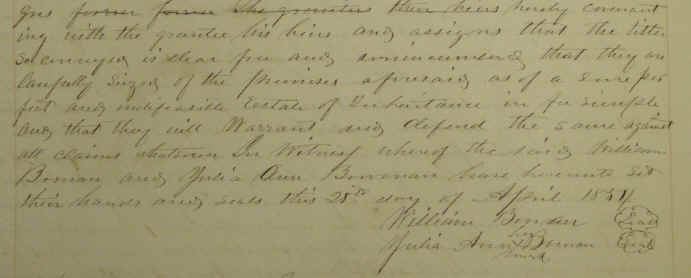 gns former former the grantors their heirs hereby covenant
ing with the grantee his heirs and assigns that the title
so conveyed is clear free and unincumbered that they are
lawfully siezed of the premises aforesaid as of a sure per
fect and indefeasible Estate of Inheritance in fee simple
and that they will Warrant and defend the same against
all claims whatsoever In Witness whereof the said William
Boman and Julia Ann Bowman have hereunto set
their hands and seals this 28th day of April 1854
William Bowman Seal
Julia Ann her Bowman Seal
mark